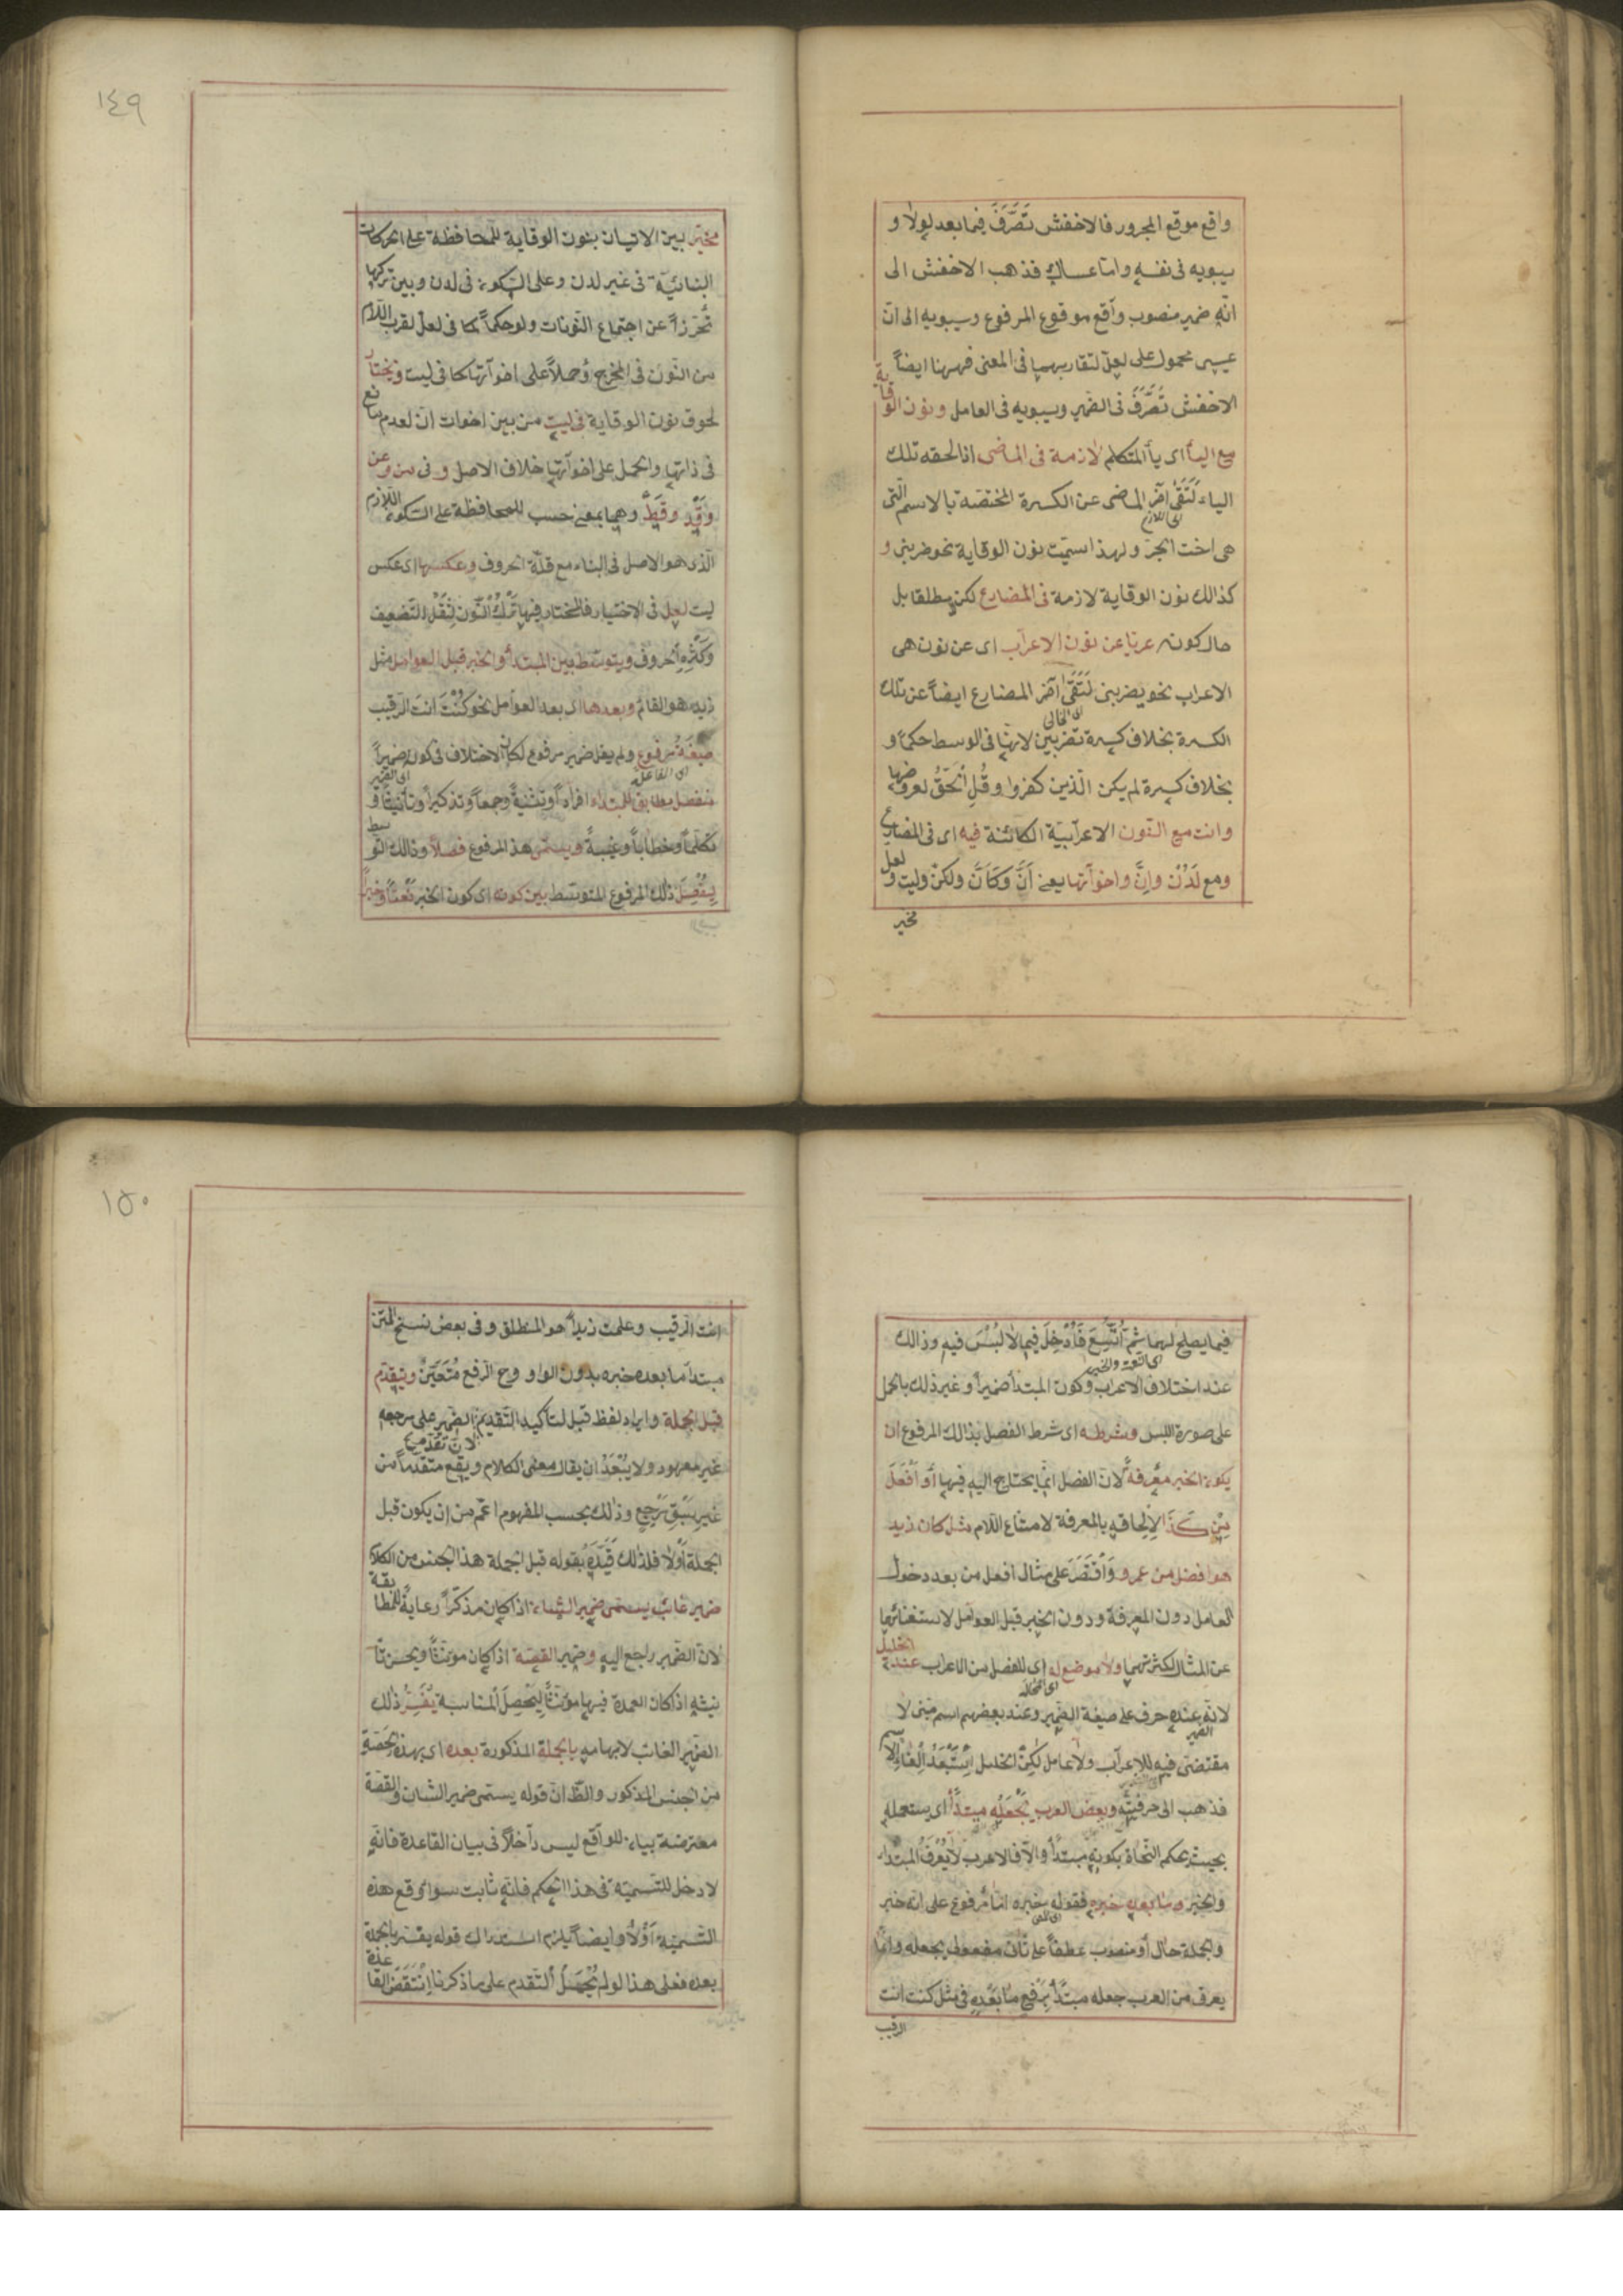 واقع موقع المجرور فالاخفش تَصَرَّفَ فيما بعد لولا و
سيبويه فى نفسه واما عساك فذهب الاخفش الى
انّه ضمير منصوب واقع موقوع المرفوع وسيبويه الى انّ
عسى محمول على لعلّ لتقاربهما فى المعنى فههنا ايضاً
الاخفش تَصَرَّفَ فى الضمير وسيبويه فى العامل ونون الوقاية
مع الياء اى ياء المتكلم لازمة فى الماضى اذا لحقه تلك
الياء لَتَقَىٰ آخر الماضى عن الكسرة المختصة بالاسم التى
هى اخت الجرّ ولهذا سميّت نون الوقاية نحو ضربنى و
كذالك نون الوقاية لازمة فى المضارع لكن مطلقا بل
حال كونه عريّا عن نون الاعراب اى عن نون هى
الاعراب نحو يضربنى لَتَقَىٰ آخر المضارع ايضاً عن تلك
الكسرة بخلاف كسرة تضربين لانها فى الوسط حكماً و
بخلاف كسرة لم يكن الّذين كفروا وقُلِ الْحَقُّ لعروضها
وانت مع النّون الاعرابيّة الكائنة فيه اى فى المضارع
ومع لَدُنْ وانّ واخواتها يعنى اَنَّ وكَاَنَّ ولكنّ وليت و لعل
مخير
١٤٩
مخيّر بين الاتيان بنون الوقاية للمحافظة على الحركات
البنائيّة فى غير لدن وعلى السّكون فى لدن وبين تركها
تُحَرّزاً عن اجتماع النّونات ولو حكماً كما فى لعلّ لقرب اللام
من النّون فى المخرج وحملاً على اخواتها كما فى ليت ويختار
لحوق نون الوقاية فى ليت من بين اخوات انّ لعدم مانع
فى ذاتها والحمل على اخواتها خلاف الاصل و فى من وعن
وقَدْ وقَطْ وهما بمعنى حسب للمحافظة على السّكون اللازم
الّذى هو الاصل فى البناء مع قلّة الحروف وعكسها اى عكس
ليت لعل فى الاختيار فالمختار فيها تَرْكُ النّون لِثِقَلِ التّضعيف
وكَثْرةِ الحروف ويتوسّط بين المبتدأ والخبر قبل العوامل مثل
زيد هو القائم وبعدها اى بعد العوامل نحو كُنْتَ انتَ الرّقيب
صيغةُ مرفوع ولم يقل ضمير مرفوع لمكان الاختلاف فى كونه ضميراً
منفصل مطابق للمبتداء افراداً وتثنيةً وجمعاً وتذكيراً وتأنيثاً و
تكلّماً وخطاباً وغيبةً ويسمّى هذ المرفوع فصلاً وذالك التّوسط
لِيَفْصِلَ ذلك المرفوع المتوسّط بين كونه اى كون الخبر نَعْتاً وخبراً
فيما يصلح لهما ثمّ اُتُّسِعَ فَاُدْخِلَ فيما لا لُبْسَ فيه وذالك
عند اختلاف الاعراب وكون المبتدأ ضميراً وغير ذلك بالحمل
على صورة اللبس وشرطه اى شرط الفصل بذالك المرفوع ان
يكون الخبر مَعْرِفةً لانّ الفصل انّما يحتاج اليه فيها أو اَفْعَلَ
مِنْ كَذَا لِالحاقه بالمعرفة لامتناع اللام مثل كان زيد
هو افضل من عمرو وَاُقْتَصَرَ على مثال افعل من بعد دخول
العامل دون المعرفة ودون الخبر قبل العوامل لاستغنائها
عن المثال لكثرتهما ولا موضع له اى للفصل من الاعراب عند الخليل
لانّه عنده حرف على صيغة الضمير وعند بعضهم اسم مبنى لا
مقتضى فيه للاعراب ولا عامل لكنّ الخليل اِسْتَبْعَدَ اِلْغاءَ الاسم
فذهب الى حرفيّته وبعض العرب يَجْعَلُه مبتدأ اى يستعمله
بحيث يحكم النّحاة بكونه مبتدأ والّا فالاعرب لايُعْرَفُ المبتداء
والخبر وما بعده خبره فقوله خبره امّا مرفوع على انّه خبر
والجملة حال أو منصوب عطفاً على ثانى مفعولى يجعله وانّما
يعرف من العرب جعله مبتدأ بِرَفْعِ ما بَعْدَه فى مثل كنت انت
الرقيب
١٥٠
انت الرّقيب وعلمت زيداً هو المنطلق وفى بعض نسخ المتن
مبتدأ ما بعده خبره بدون الواو وح الرّفع مُتَعَيّنٌ ويتقدّم
قبل الجملة وايراد لفظ قبل لتأكيد التّقدّم الضمير على مرجعه
غير معهود ولا يُبْعَدُ ان يقال معنى الكلام ويقع متقدّماً من
غير سَبْقِ مَرْجِعِ وذلك بحسب المفهوم اعمّ من ان يكون قبل
الجملة أوْلا فلذلك قَيَّدَهُ بقوله قبل الجملة هذا الجنس من الكلام
ضمير غائب يسمّى ضمير الشان اذا كان مذكّراً رعايةً للمطابقة
لانّ الضّمير راجع اليه وضمير القصّة اذا كان مؤنّثاً ويحسن تا
نيثه اذا كان العمدة فيها مؤنثاً لِيَحْصِلَ المناسبة يُفَسِّرُ ذلك
الضّمير الغائب لابهامه بالجملة المذكورة بعده اى بهذه الحصّة
من الجنس المذكور والظّ انّ قوله يسمّى ضمير الشان والقصّة
معترضة بيان للواقع ليس داخلاً فى بيان القاعدة فانّه
لا دخل للتّسمية فى هذا الحكم فانّه ثابت سواء وقع هذه
التّسمية أوْلا وايضاً يلزم استدراك قوله يفسّر بالجملة
بعده فعلى هذا لو لم يُحْمَلُ التّقدم على ما ذكرنا اِنْتَقَضَ القاعدة